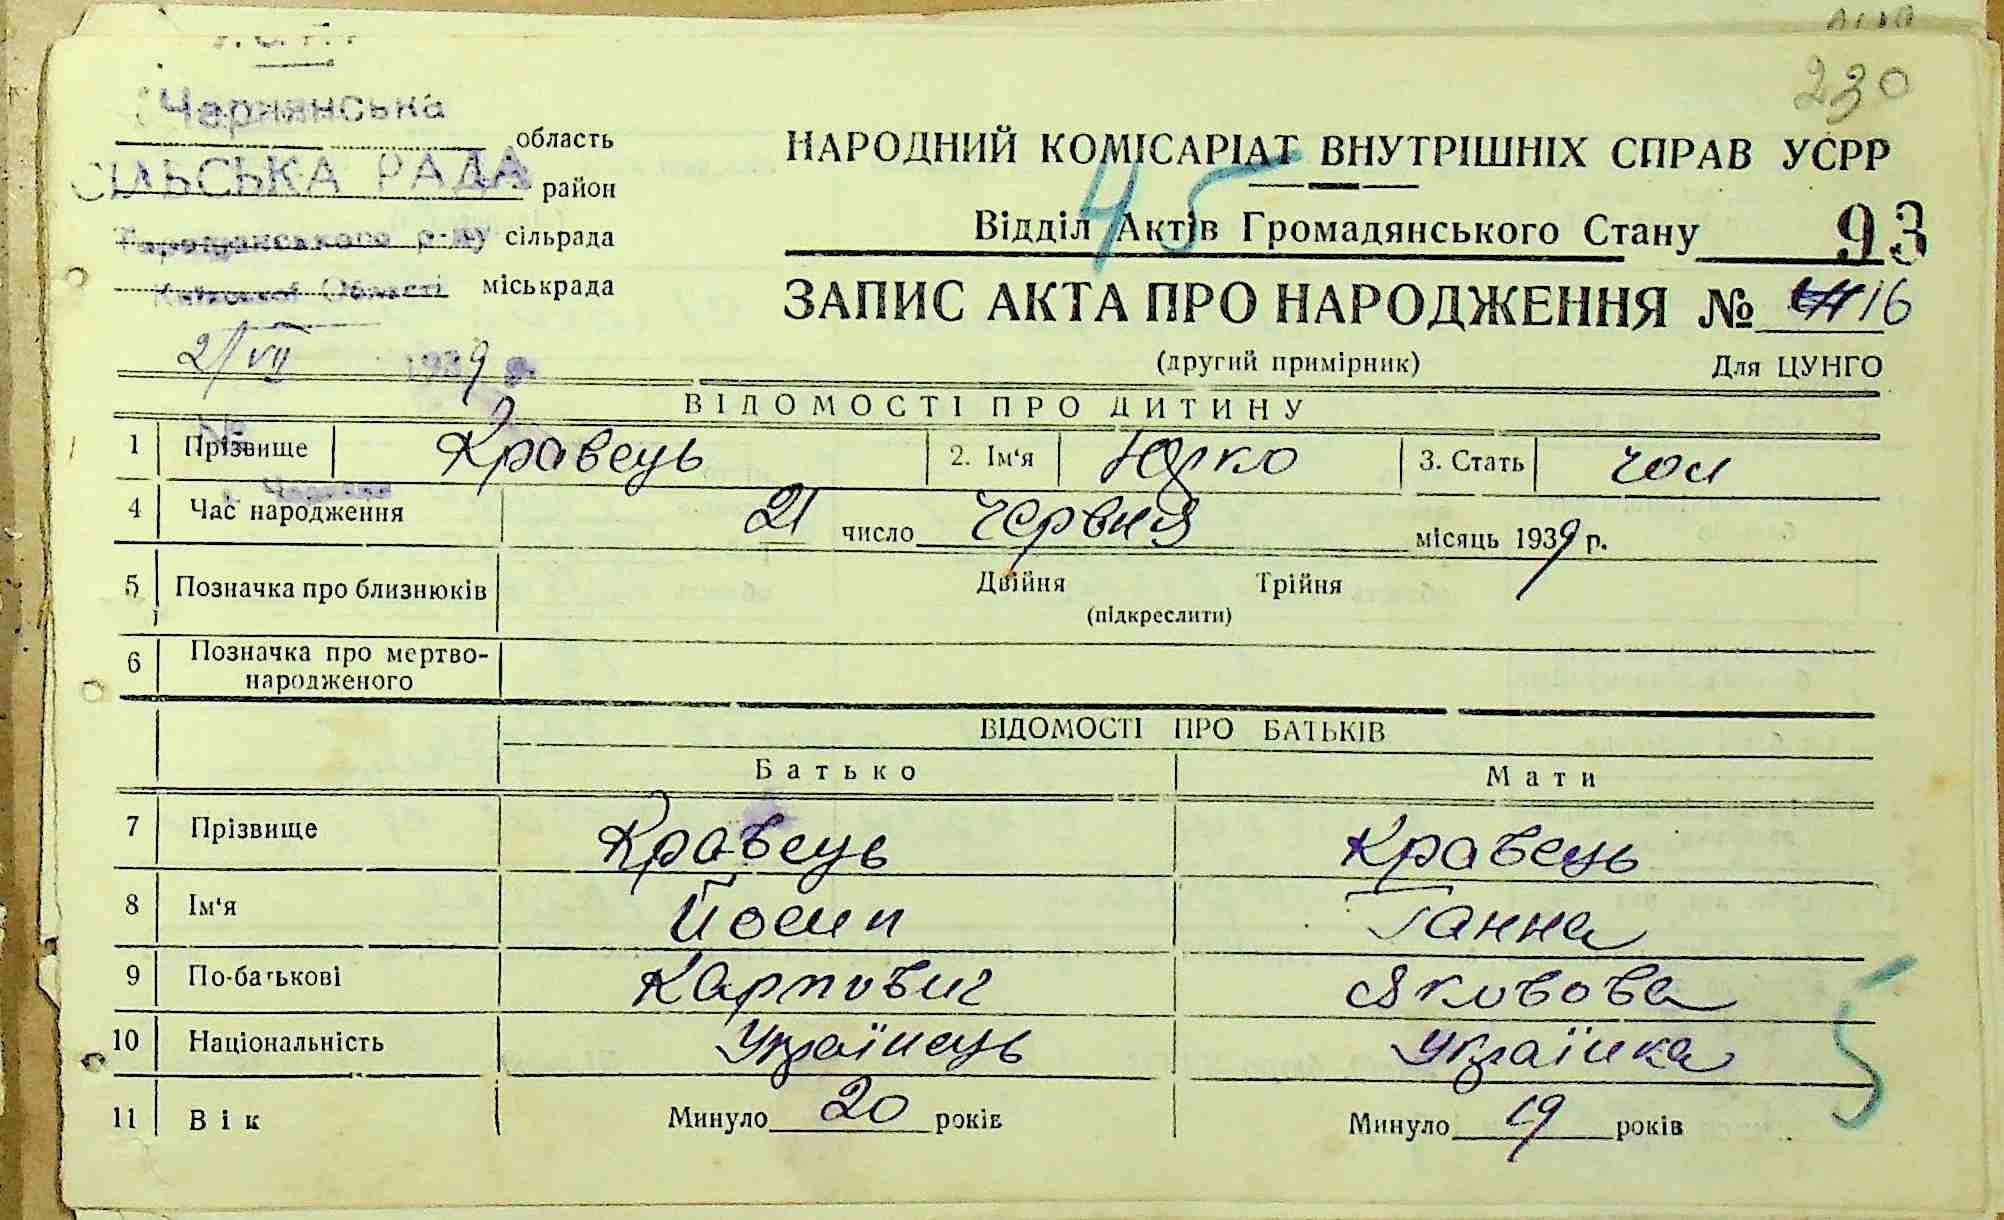 230
Чернянська
область
СІЛЬСЬКА РАДА
район
Таращанського р-ну сільрада
Київської Області міськрада
21/VII 1939 р.
№
с. Чернин
НАРОДНИЙ КОМІСАРІАТ ВНУТРІШНІХ СПРАВ УСРР
45
Відділ Актів Громадянського Стану 93
ЗАПИС АКТА ПРО НАРОДЖЕННЯ № 16
(другий примірник) Для ЦУНГО
ВІДОМОСТІ ПРО ДИТИНУ
1 Прізвище Кравець 2. Ім'я Юрко 3. Стать чол
4 Час народження 21 число Червня місяць 1939 р.
5 Позначка про близнюків Двійня Трійня
(підкреслити)
6 Позначка про мертво-
народженого
ВІДОМОСТІ ПРО БАТЬКІВ
Батько Мати
7 Прізвище Кравець Кравець
8 Ім'я Йосип Ганна
9 По-батькові Карпович Яковова
10 Національність Українець Українка
5
11 Вік Минуло 20 років Минуло 19 років